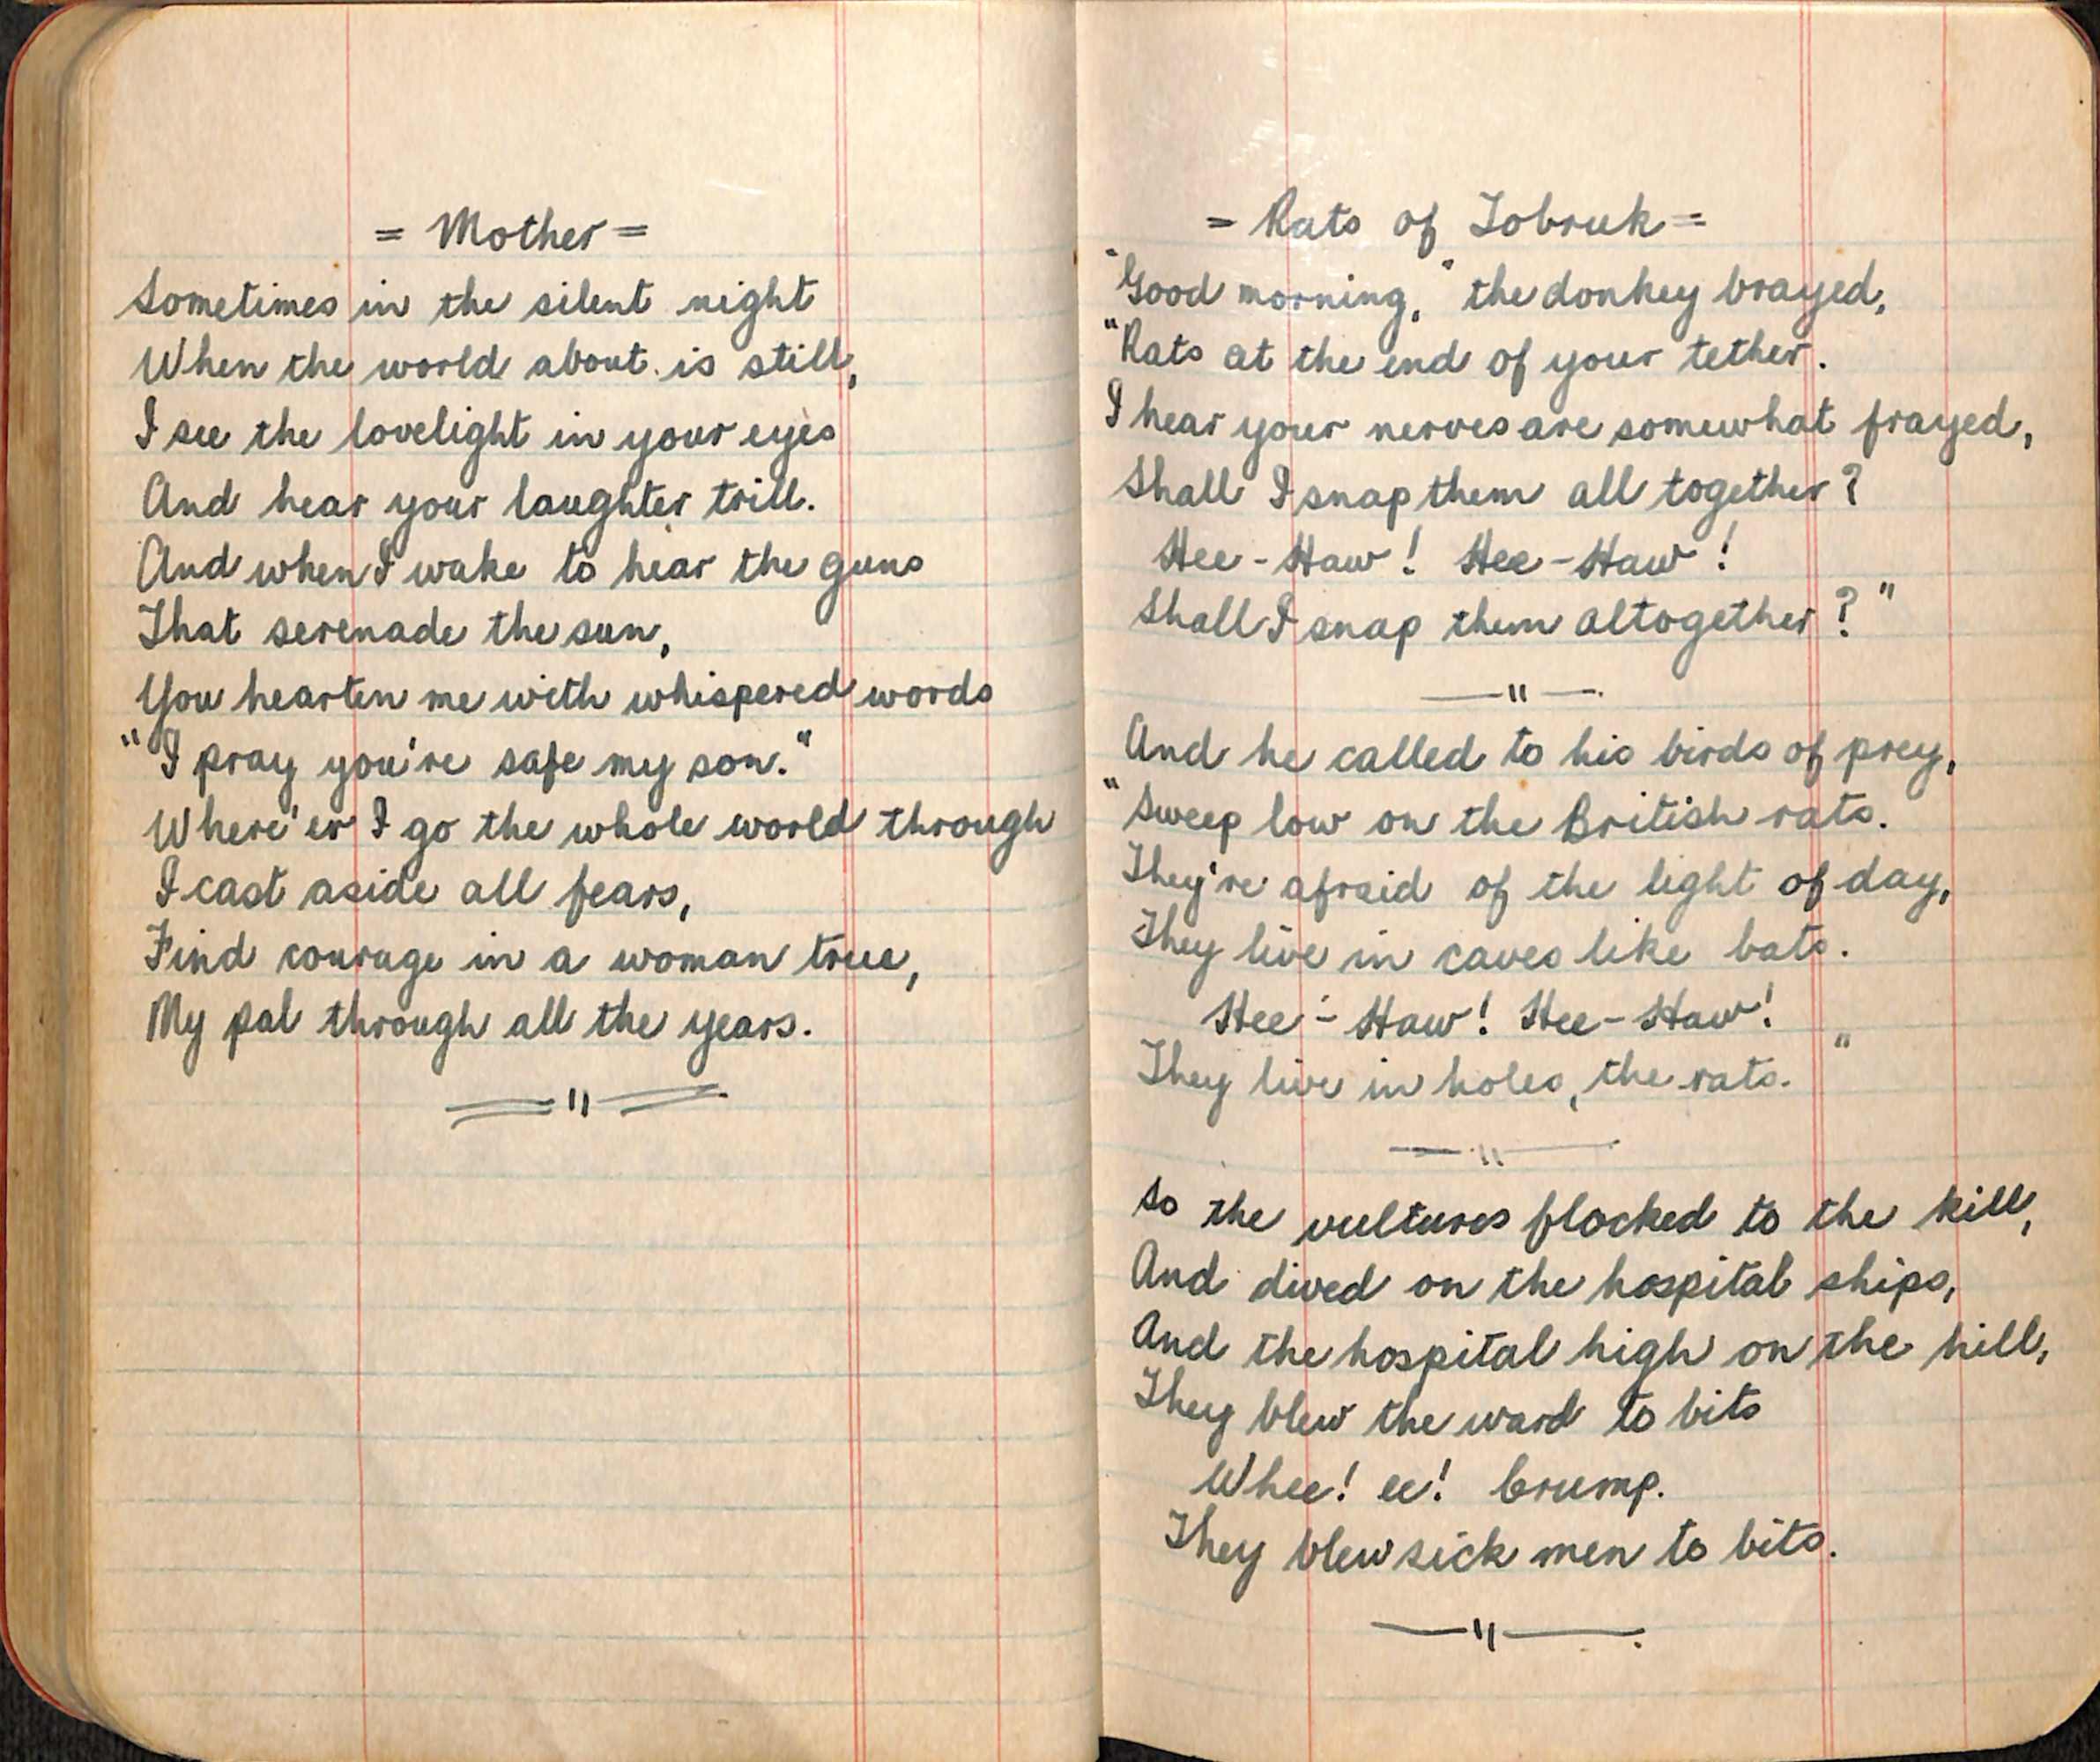 = Mother =
Sometimes in the silent night
When the world about is still,
I see the lovelight in your eyes
And hear your laughter trill.
And when I wake to hear the guns
That serenade the sun,
You hearten me with whispered words
"I pray you're safe my son."
Where'er I go the whole world through
I cast aside all fears,
Find courage in a woman true,
My pal through all the years.
= Rats of Tobruk =
"Good morning," the donkey brayed,
"Rats at the end of your tether.
I hear your nerves are somewhat frayed,
Shall I snap them all together?
Hee-Haw! Hee-Haw!
Shall I snap them altogether?"
And he called to his birds of prey,
"Sweep low on the British rats.
They're afraid of the light of day,
They live in caves like bats.
Hee-Haw! Hee-Haw!
They live in holes, the rats."
So the vultures flocked to the kill,
And dived on the hospital ships,
And the hospital high on the hill,
They blew the ward to bits
Whee! ee! Crump.
They blew sick men to bits.